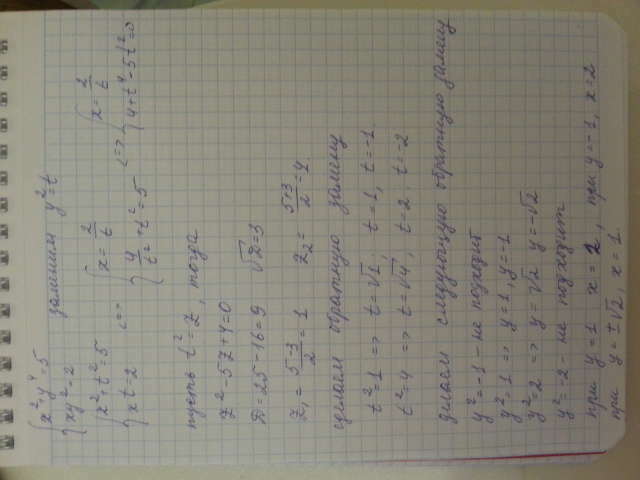 {x²+y⁴=5
{xy²=2 заменим y²=t
{x²+t²=5
{xt=2 <=> {x=2/t
{4/t²+t²=5 <=> {x=2/t
{4+t⁴-5t²=0
пусть t²=z, тогда
z²-5z+4=0
D=25-16=9 √D=3
z₁=(5-3)/2=1 z₂=(5+3)/2=4
сделаем обратную замену
t²=1 => t=√1, t=1, t=-1.
t²=4 => t=√4, t=2, t=-2
делаем следующую обратную замену
y²=-1 - не подходит
y²=1 => y=1, y=-1
y²=2 => y=√2 y=-√2
y²=-2 - не подходит
при y=1 x=2, при y=-1, x=2
при y=±√2, x=1.